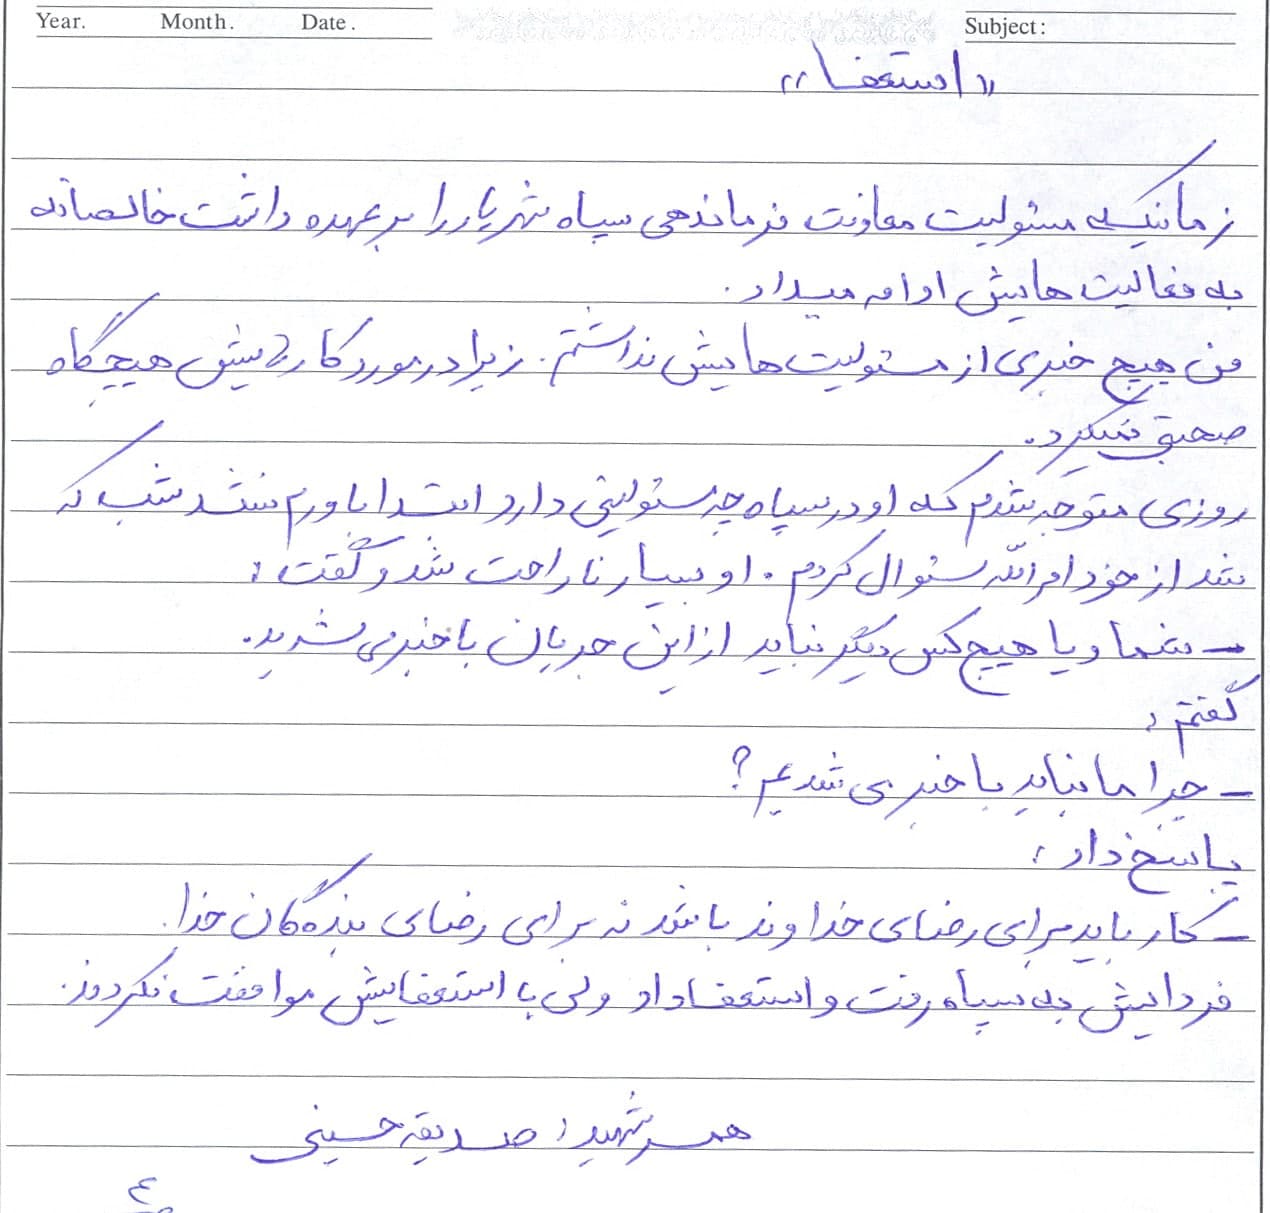 Year. Month. Date. Subject:
«استعفا»
زمانیکه مسئولیت معاونت فرماندهی سپاه شهریار را بر عهده داشت خالصانه
به فعالیت هایش ادامه میداد.
من هیچ خبری از مسئولیت هایش نداشتم. زیرا در مورد کارهایش هیچگاه
صحبتی نمیکرد.
روزی متوجه شدم که او در سپاه چه مسئولیتی دارد ابتدا باورم نشد شب که
شد از خود امرالله سئوال کردم. او بسیار ناراحت شد و گفت:
- شما و یا هیچ کس دیگر نباید از این جریان با خبر می شدید.
گفتم:
- چرا ما نباید با خبر می شدیم؟
پاسخ داد:
- کار باید برای رضای خداوند باشد نه برای رضای بندگان خدا.
فردایش به سپاه رفت و استعفا داد ولی با استعفایش موافقت نکردند.
همسر شهید: صدیقه حسینی
٤